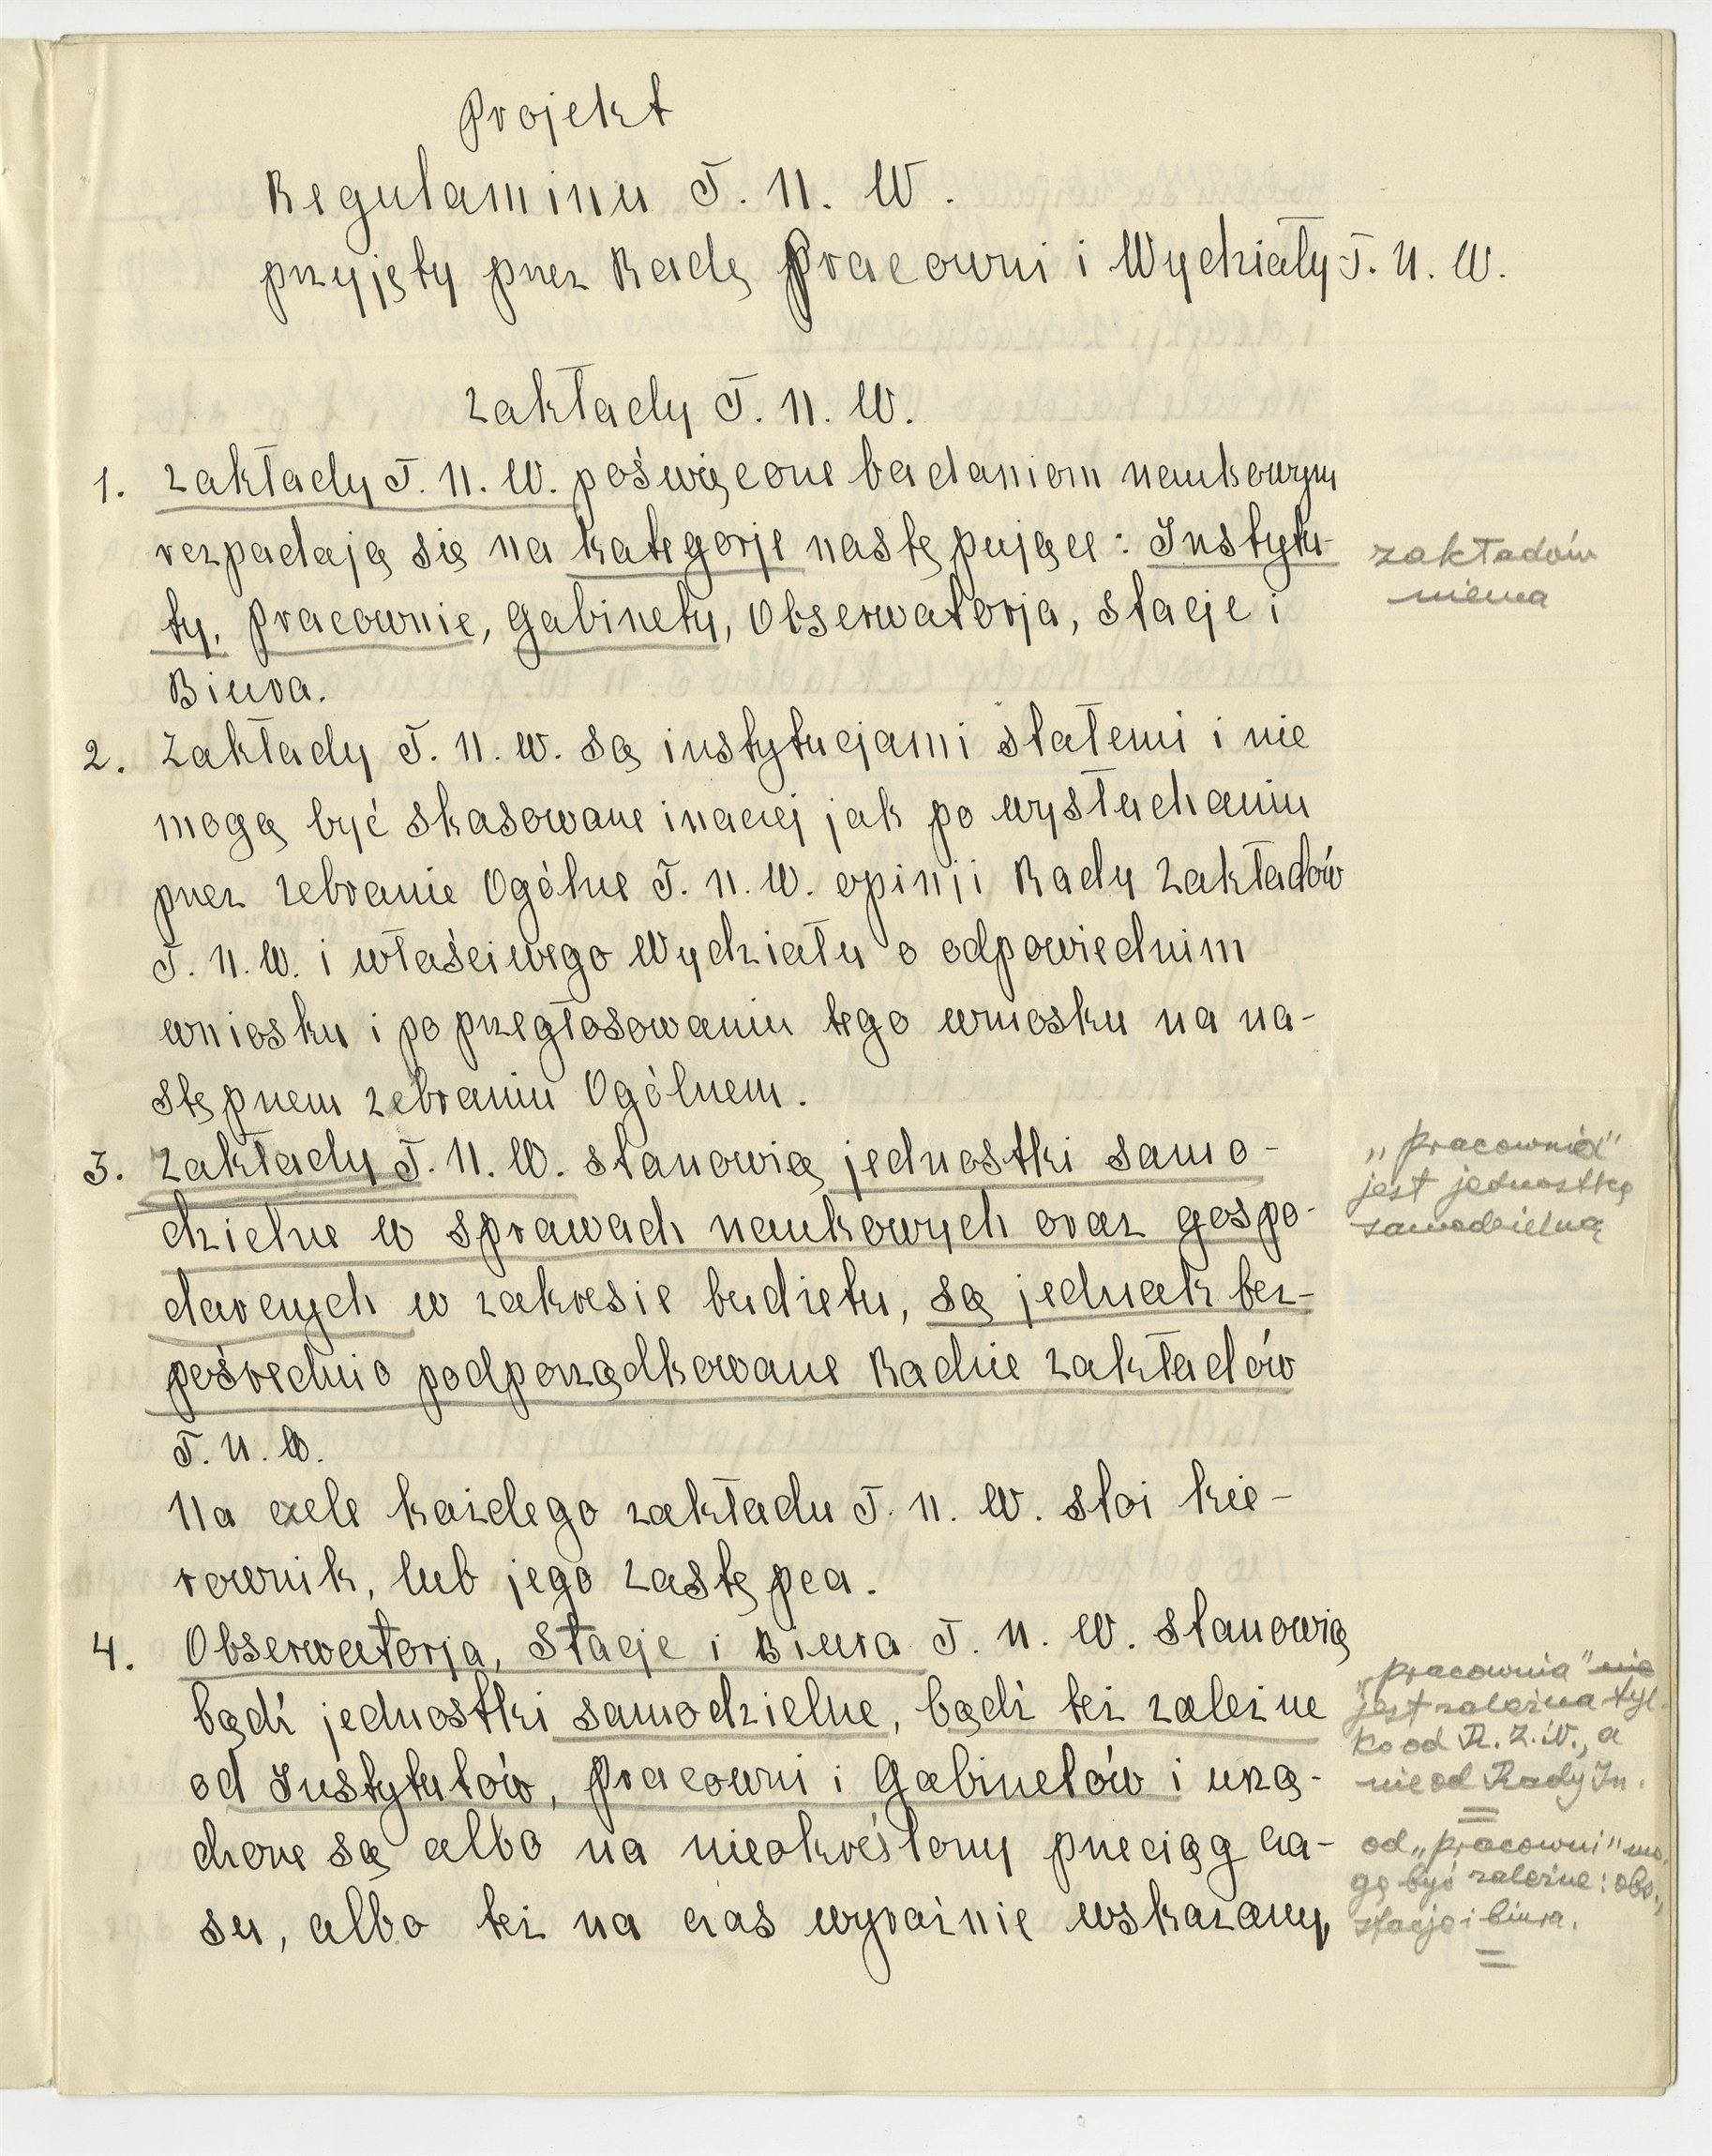 Projekt
Regulaminu T. N. W.
przyjęty przez Radę Pracowni i Wydziały T. N. W.
Zakłady T. N. W.
1. Zakłady T. N. W. poświęcone badaniom naukowym
rozpadają się na kategorje następujące: Instytu-
ty, Pracownie, Gabinety, Obserwatorja, Stacje i
Biura.
zakładów
niema
2. Zakłady T. N. W. są instytucjami stałemi i nie
mogą być skasowane inaczej jak po wysłuchaniu
przez Zebranie Ogólne T. N. W. opinji Rady Zakładów
T. N. W. i właściwego Wydziału o odpowiednim
wniosku i po przegłosowaniu tego wniosku na na-
stępnem Zebraniu Ogólnem.
3. Zakłady T. N. W. stanowią jednostki samo-
dzielne w sprawach naukowych oraz gospo-
darczych w zakresie budżetu, są jednak bez-
pośrednio podporządkowane Radzie Zakładów
T. N. W.
„pracownia"
jest jednostką
samodzielną
Na czele każdego zakładu T. N. W. stoi kie-
rownik, lub jego zastępca.
4. Obserwatorja, Stacje i Biura T. N. W. stanowią
bądź jednostki samodzielne, bądź też zależne
od Instytutów, Pracowni i Gabinetów i urzą-
dzone są albo na nieokreślony przeciąg cza-
su, albo też na czas wyraźnie wskazany,
„pracownia" nie
jest zależna tyl-
ko od R. Z. W., a
nie od Rady In.
od „pracowni" mo-
gą być zależne: obs.,
stacje i biura.